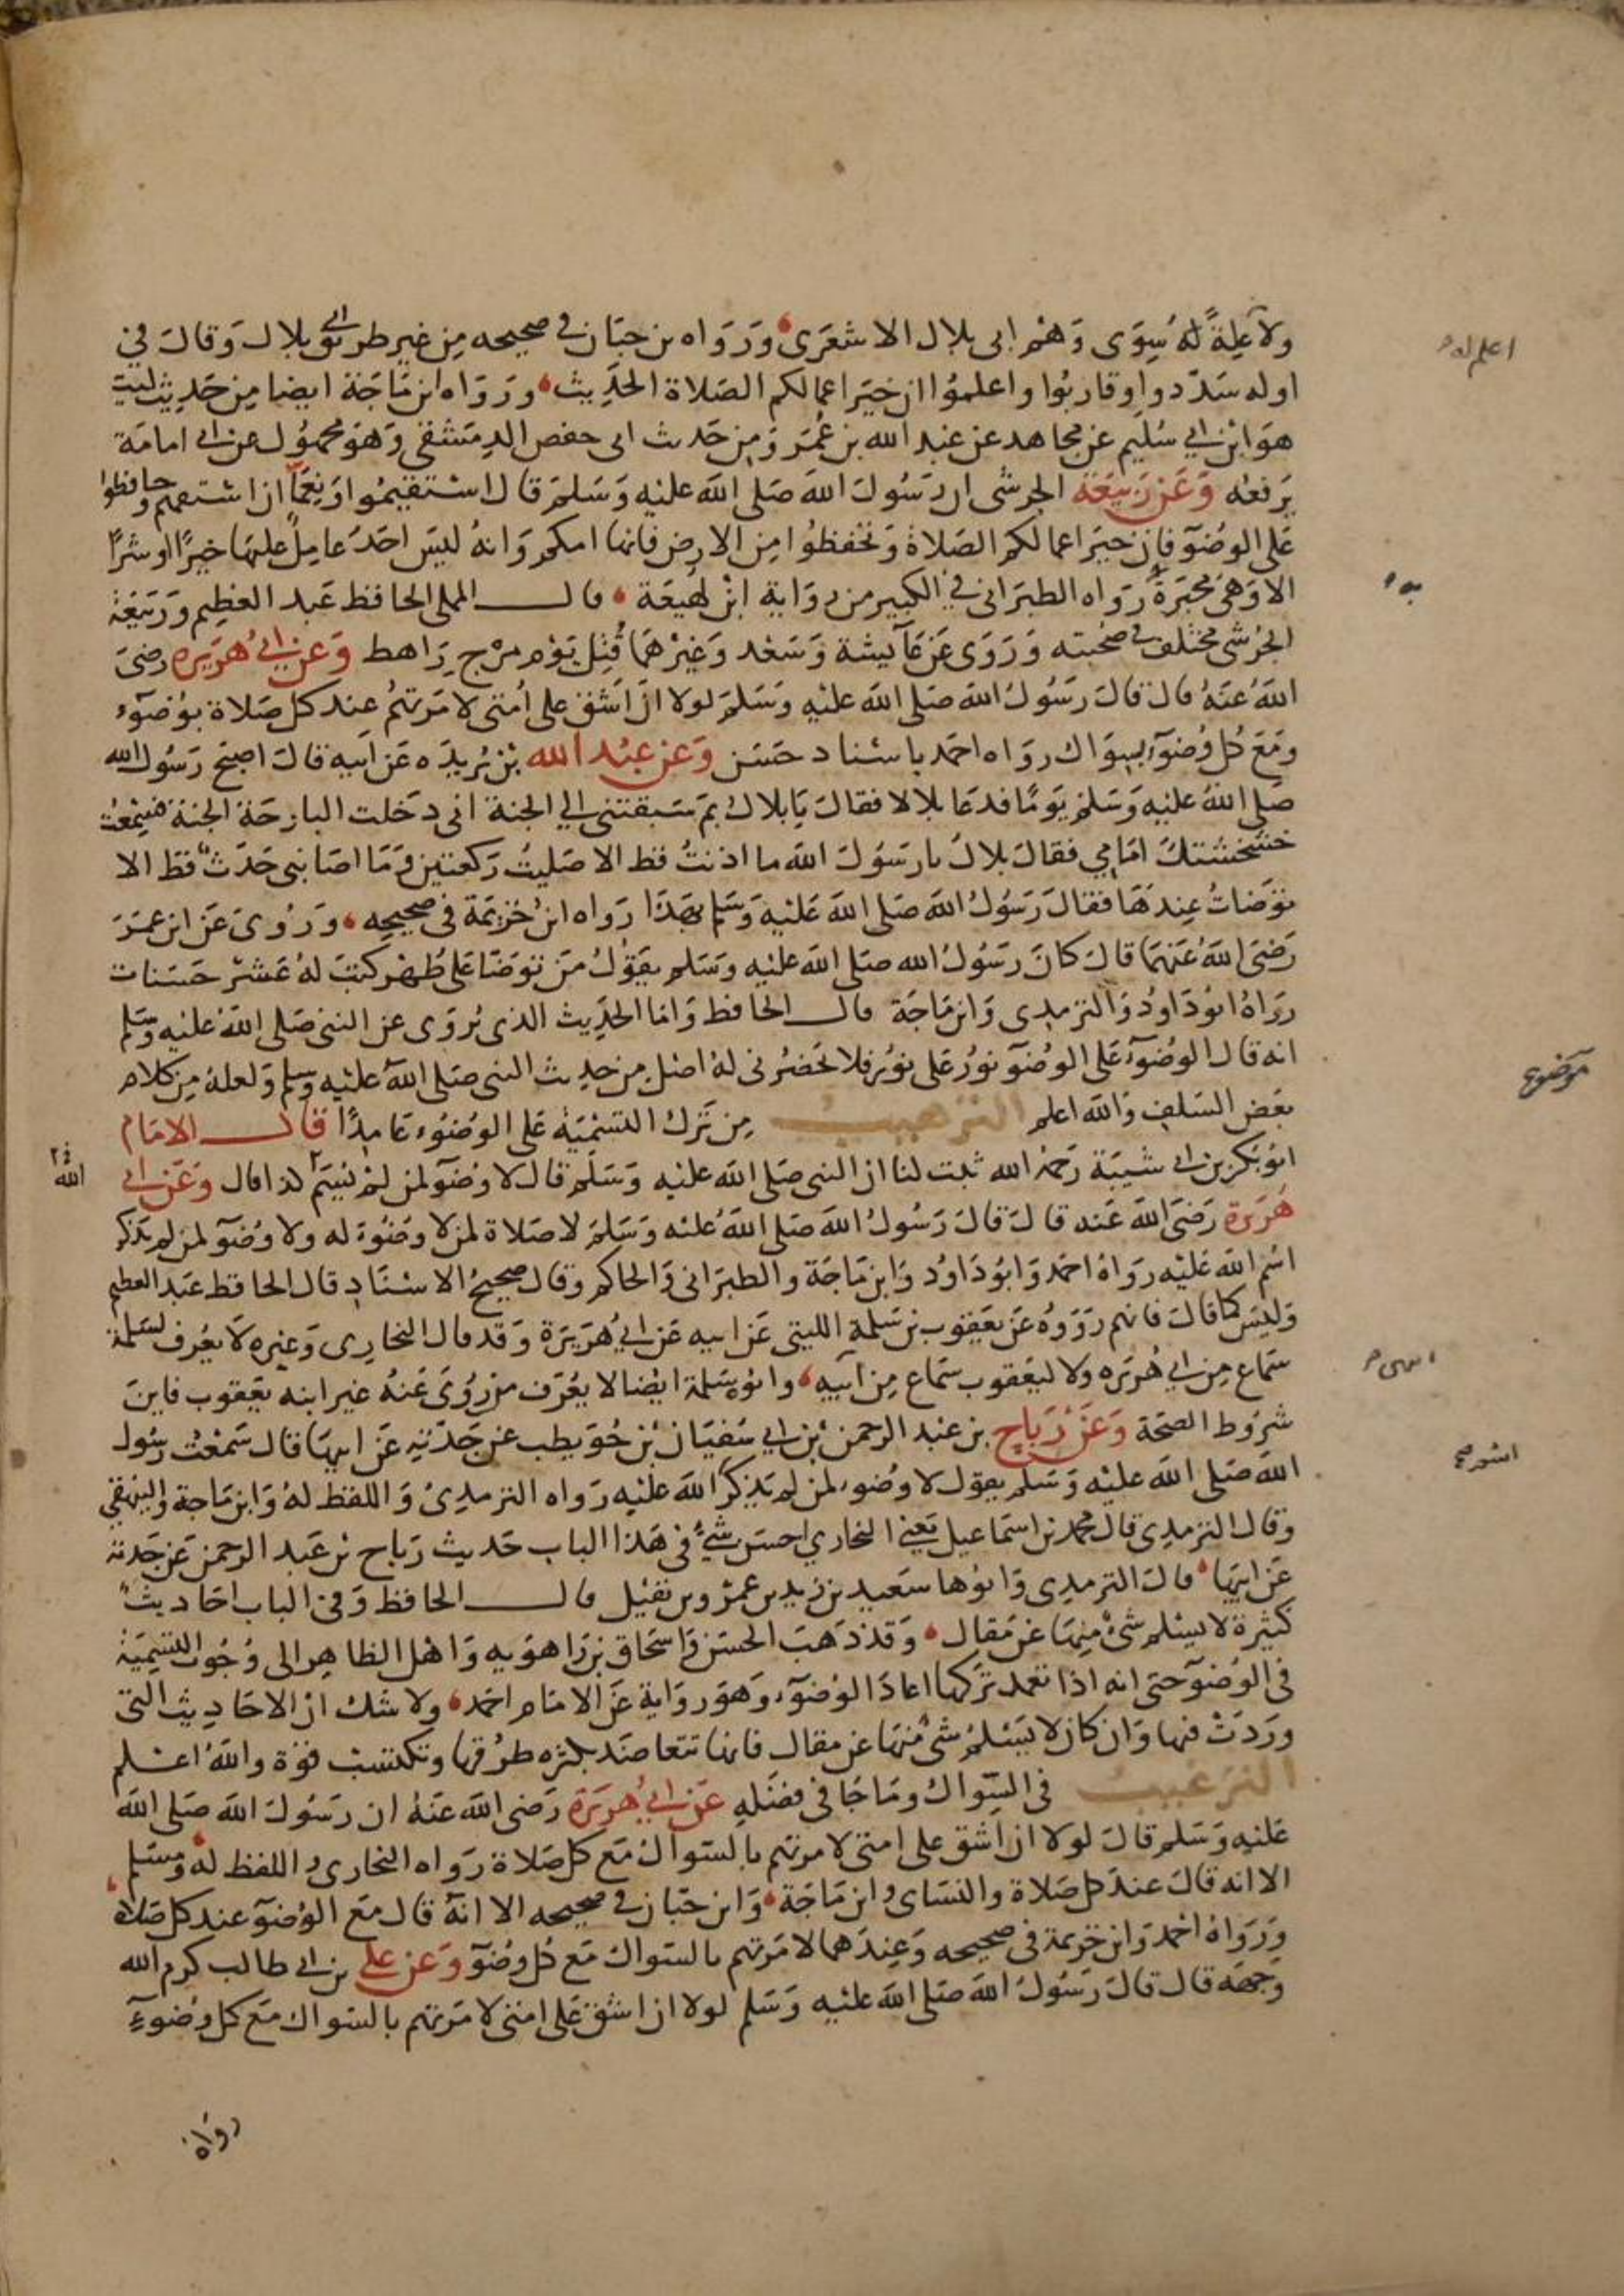 ولا علة له سوى وهم ابى بلال الاشعرى ورواه بن حبان في صحيحه من غير طريق ابي بلال وقال في
اوله سددوا وقاربوا واعلموا ان خير اعمالكم الصلاة الحديث ورواه ابن ماجة ايضا من حديث ليث
هو ابن ابي سليم عن مجاهد عن عبد الله بن عمر ومن حديث ابى حفص الدمشقى وهو مجهول عن ابي امامة
يرفعه وعن ربيعة الجرشى ان رسول الله صلى الله عليه وسلم قال استقيموا ونعما ان استقمتم وحافظوا
على الوضوء فإن خير اعمالكم الصلاة وتحفظوا من الارض فانها امكم وانه ليس احد عامل عليها خيرا او شرا
الا وهى مخبرة رواه الطبرانى في الكبير من رواية ابن لهيعة قال المملى الحافظ عبد العظيم وربيعة
الجرشى مختلف في صحبته وروى عن عائشة وسعد وغيرهما قتل يوم مرج راهط وعن ابي هريره رضى
الله عنه قال قال رسول الله صلى الله عليه وسلم لولا ان اشق على امتى لامرتهم عند كل صلاة بوضوء
ومع كل وضوء بسواك رواه احمد باسناد حسن وعن عبد الله بن بريده عن ابيه قال اصبح رسول الله
صلى الله عليه وسلم يوما فدعا بلالا فقال يا بلال بم سبقتنى الى الجنة انى دخلت البارحة الجنة فسمعت
خشخشتك امامي فقال بلال يا رسول الله ما اذنت قط الا صليت ركعتين وما اصابنى حدث قط الا
توضات عندها فقال رسول الله صلى الله عليه وسلم بهذا رواه ابن خزيمة في صحيحه وروى عن ابن عمر
رضى الله عنهما قال كان رسول الله صلى الله عليه وسلم يقول من توضا على طهر كتب له عشر حسنات
رواه ابو داود والترمذى وابن ماجة قال الحافظ واما الحديث الذى يروى عن النبى صلى الله عليه وسلم
انه قال الوضوء على الوضوء نور على نور فلا يحضرنى له اصل من حديث النبى صلى الله عليه وسلم ولعله من كلام
بعض السلف والله اعلم الترهيب من ترك التسمية على الوضوء عامدا قال الامام
ابو بكر بن ابي شيبة رحمه الله ثبت لنا ان النبى صلى الله عليه وسلم قال لا وضوء لمن لم يسم كذا قال وعن ابي
هريرة رضى الله عنه قال قال رسول الله صلى الله عليه وسلم لا صلاة لمن لا وضوء له ولا وضوء لمن لم يذكر
اسم الله عليه رواه احمد وابو داود وابن ماجة والطبرانى والحاكم وقال صحيح الاسناد قال الحافظ عبد العظيم
وليس كما قال فانهم رووه عن يعقوب بن سلمة الليثى عن ابيه عن ابي هريرة وقد قال البخارى وغيره لا يعرف لسلمة
سماع من ابي هريره ولا ليعقوب سماع من ابيه وابوه سلمة ايضا لا يعرف من روى عنه غير ابنه يعقوب فاين
شروط الصحة وعن رباح بن عبد الرحمن بن ابي سفيان بن حويطب عن جدته عن ابيها قال سمعت رسول
الله صلى الله عليه وسلم يقول لا وضوء لمن لم يذكر الله عليه رواه الترمذى واللفظ له وابن ماجة والبيهقي
وقال الترمذى قال محمد بن اسماعيل يعني البخاري احسن شيء في هذا الباب حديث رباح بن عبد الرحمن عن جدته
عن ابيها قال الترمذى وابوها سعيد بن زيد بن عمرو بن نفيل قال الحافظ وفى الباب احاديث
كثيرة لا يسلم شى منها عن مقال وقد ذهب الحسن واسحاق بن راهويه واهل الظاهر الى وجوب التسمية
فى الوضوء حتى انه اذا تعمد تركها اعاد الوضوء وهو رواية عن الامام احمد ولا شك ان الاحاديث التى
وردت فيها وان كان لا يسلم شى منها عن مقال فانها تتعاضد بكثره طرقها وتكتسب قوة والله اعلم
الترغيب فى السواك وما جا فى فضله عن ابي هريرة رضى الله عنه ان رسول الله صلى الله
عليه وسلم قال لولا ان اشق على امتى لامرتهم بالسواك مع كل صلاة رواه البخارى واللفظ له ومسلم
الا انه قال عند كل صلاة والنساى وابن ماجة وابن حبان في صحيحه الا انه قال مع الوضوء عند كل صلاة
ورواه احمد وابن خزيمة فى صحيحه وعندهما لامرتهم بالسواك مع كل وضوء وعن على بن ابي طالب كرم الله
وجهه قال قال رسول الله صلى الله عليه وسلم لولا ان اشق على امتى لامرتهم بالسواك مع كل وضوء
رواه
اعلم له
به
موضوع
الله